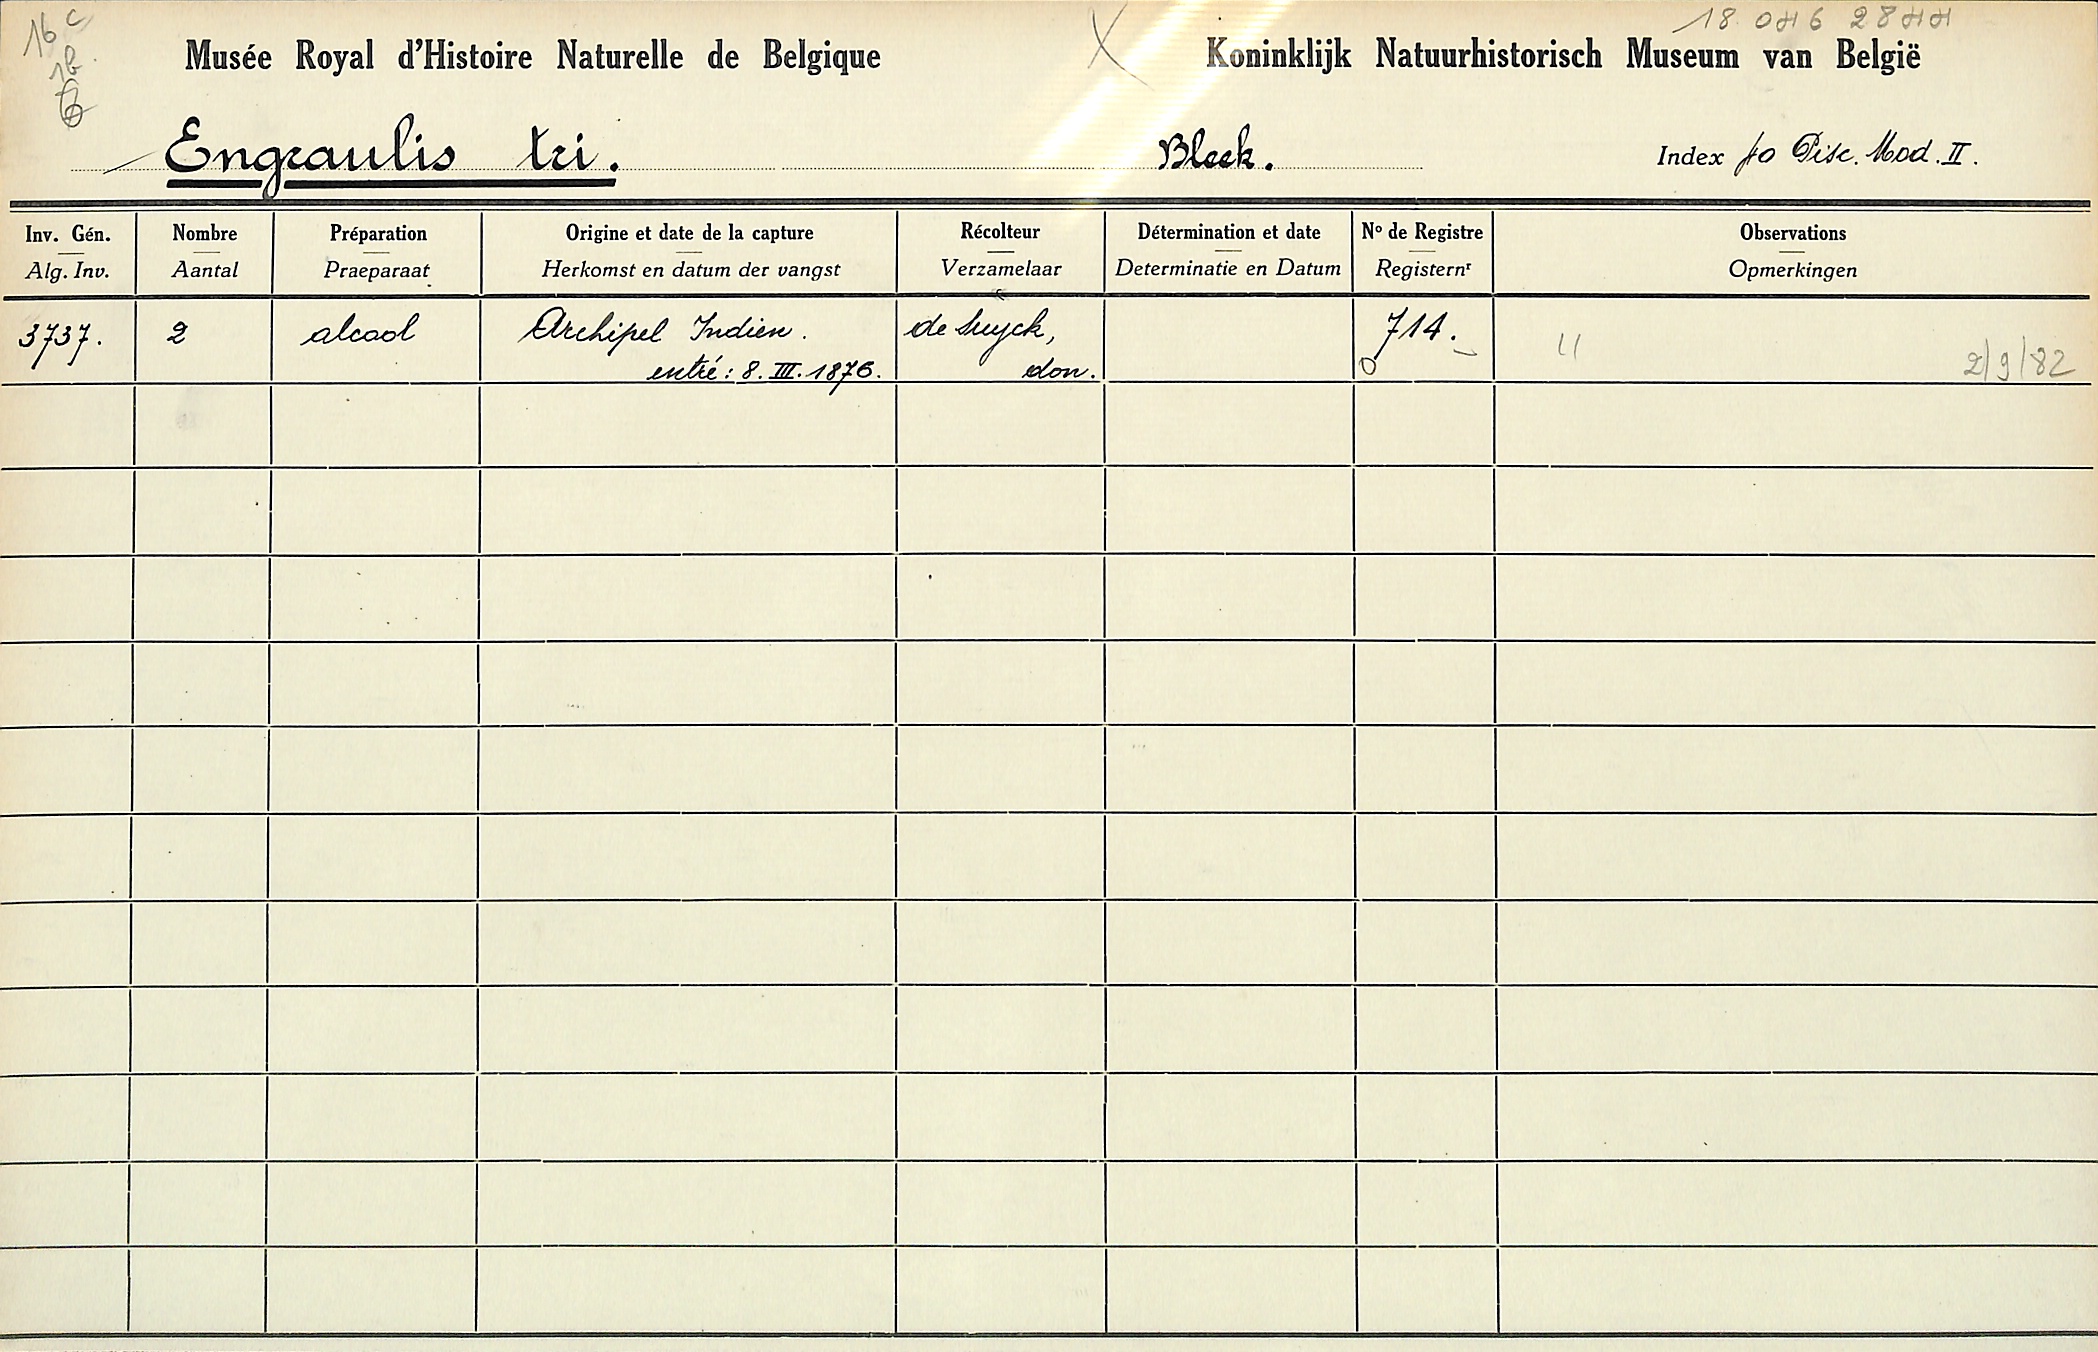 16 c
18 046 2844
Musée Royal d'Histoire Naturelle de Belgique
X
Koninklijk Natuurhistorisch Museum van België
16
6
Engraulis tri.
Bleek.
Index fo Pisc. Mod. II.
Inv. Gén.
Alg. Inv.
Nombre
Aantal
Préparation
Praeparaat
Origine et date de la capture
Herkomst en datum der vangst
Récolteur
Verzamelaar
Détermination et date
Determinatie en Datum
Nº de Registre
Registernʳ
Observations
Opmerkingen
3737.
2
alcool
Archipel Indien.
entré: 8. III. 1876.
de
don.
714.
2/9/82